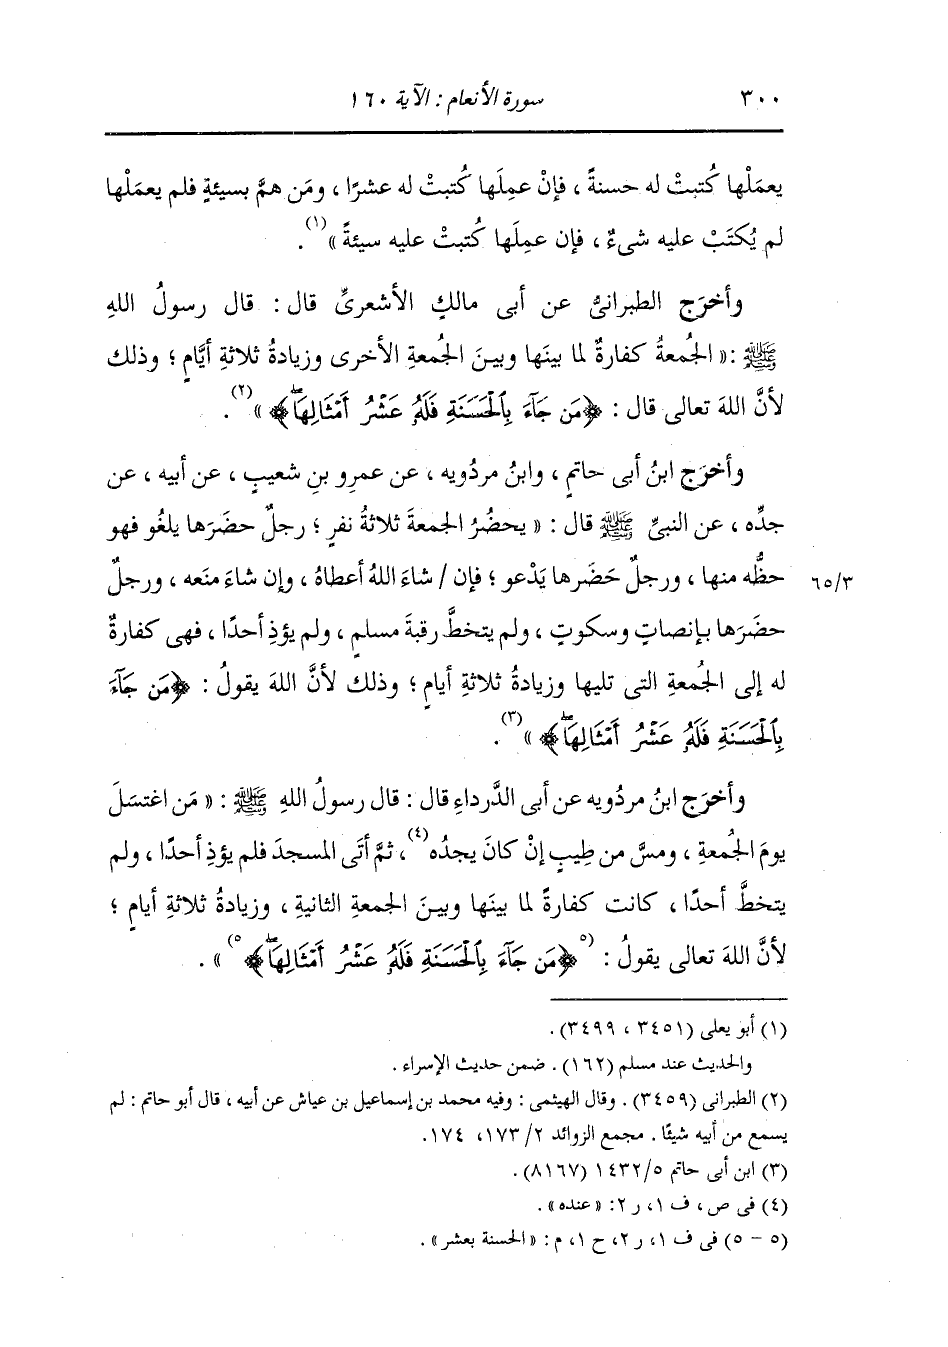 ٣٠٠ سورة الأنعام : الآية ١٦٠
يعمَلْها كُتبتْ له حسنةً ، فإنْ عمِلَها كُتبتْ له عشرًا ، ومَن همَّ بسيئةٍ فلم يعمَلْها
لم يُكتَبْ عليه شىءٌ ، فإن عمِلَها كُتبتْ عليه سيئةً »(١).
وأخرَج الطبرانىُّ عن أبى مالكٍ الأشعرىِّ قال : قال رسولُ اللهِ
ﷺ :« الجُمعةُ كفارةٌ لما بينَها وبينَ الجُمعةِ الأخرى وزيادةُ ثلاثةِ أيَّامٍ ؛ وذلك
لأنَّ اللهَ تعالى قال : ﴿مَن جَآءَ بِٱلْحَسَنَةِ فَلَهُۥ عَشْرُ أَمْثَالِهَاۖ﴾ »(٢).
وأخرَج ابنُ أبى حاتمٍ ، وابنُ مردُويه ، عن عمرِو بنِ شعيبٍ ، عن أبيه ، عن
جدِّه ، عن النبىِّ ﷺ قال : « يحضُرُ الجمعةَ ثلاثةُ نفرٍ ؛ رجلٌ حضَرَها يلغُو فهو
حظُّه منها ، ورجلٌ حَضَرها يَدْعو ؛ فإن / شاءَ اللهُ أعطاهُ ، وإن شاءَ منَعه ، ورجلٌ ٦٥/٣
حضَرَها بإنصاتٍ وسكوتٍ ، ولم يتخطَّ رقبةَ مسلمٍ ، ولم يؤذِ أحدًا ، فهى كفارةٌ
له إلى الجُمعةِ التى تليها وزيادةُ ثلاثةِ أيامٍ ؛ وذلك لأنَّ اللهَ يقولُ : ﴿مَن جَآءَ
بِٱلْحَسَنَةِ فَلَهُۥ عَشْرُ أَمْثَالِهَاۖ﴾ »(٣).
وأخرَج ابنُ مردُويه عن أبى الدَّرداءِ قال : قال رسولُ اللهِ ﷺ : « مَن اغتسَلَ
يومَ الجُمعةِ ، ومسَّ من طِيبٍ إنْ كانَ يجدُه(٤)، ثمَّ أتَى المسجدَ فلم يؤذِ أحدًا ، ولم
يتخطَّ أحدًا ، كانت كفارةً لما بينَها وبينَ الجمعةِ الثانيةِ ، وزيادةُ ثلاثةِ أيامٍ ؛
لأنَّ اللهَ تعالى يقولُ : (٥﴿مَن جَآءَ بِٱلْحَسَنَةِ فَلَهُۥ عَشْرُ أَمْثَالِهَاۖ﴾٥) » .
(١) أبو يعلى (٣٤٥١ ، ٣٤٩٩) .
والحديث عند مسلم (١٦٢) . ضمن حديث الإسراء .
(٢) الطبرانى (٣٤٥٩) . وقال الهيثمى : وفيه محمد بن إسماعيل بن عياش عن أبيه ، قال أبو حاتم : لم
يسمع من أبيه شيئًا . مجمع الزوائد ٢/ ١٧٣، ١٧٤.
(٣) ابن أبى حاتم ١٤٣٢/٥ (٨١٦٧) .
(٤) فى ص ، ف ١، ر ٢: «عنده» .
(٥ - ٥) فى ف ١، ر ٢، ح ١، م : «الحسنة بعشر» .